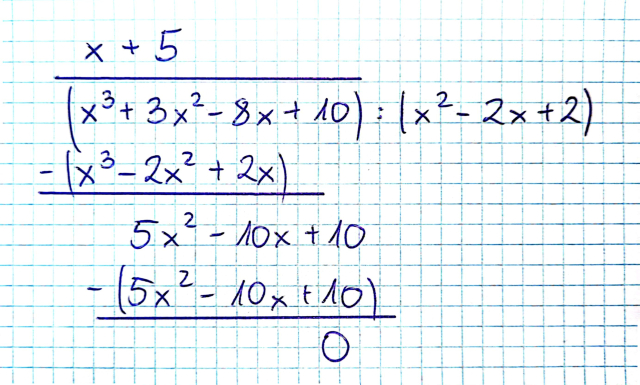 x + 5
(x³ + 3x² - 8x + 10) : (x² - 2x + 2)
- (x³ - 2x² + 2x)
5x² - 10x + 10
- (5x² - 10x + 10)
0